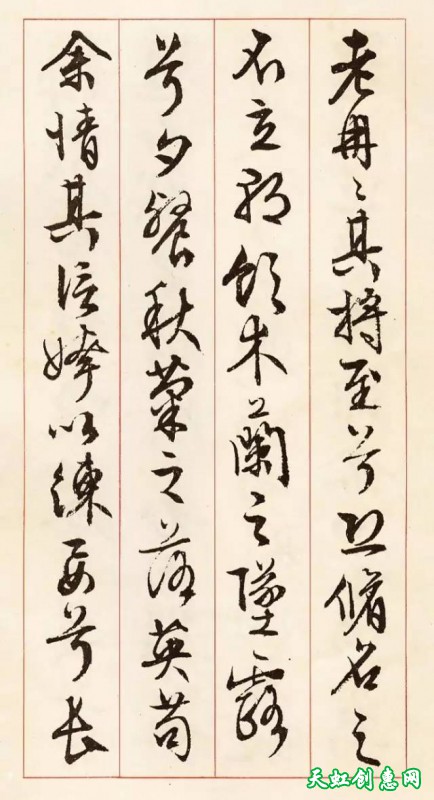 老冉々其將至兮恐脩名之
不立朝飲木蘭之墜露
兮夕餐秋菊之落英苟
余情其信姱以練要兮長
天虹创惠网